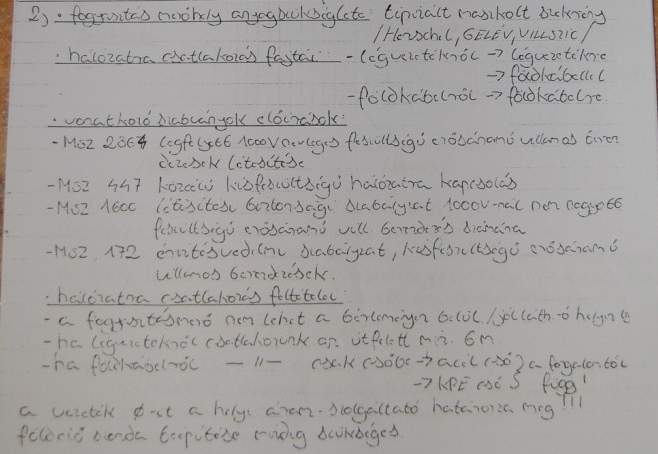 2) · fogyasztás mérőhely anyagszükséglete: tipizált maszkolt szekrény
/Herschel, GELÉV, VILLSZIG/
· hálózatra csatlakozás fajtái - légvezetékről → légvezetékre
→ földkábellel
- földkábelről → földkábelre.
· vonatkozó szabványok előírások:
- MSZ 2364 legfeljebb 1000V névleges feszültségű erősáramú villamos beren
dezések létesítése
- MSZ 447 közcélú kisfeszültségű hálózatra kapcsolás
- MSZ 1600 létesítési biztonsági szabályzat 1000V-nál nem nagyobb
feszültségű erősáramú vill. berendezés számára
- MSZ 172 érintésvédelmi szabályzat, kisfeszültségű erősáramú
villamos berendezések.
· hálózatra csatlakozás feltételei
- a fogyasztásmérő nem lehet a bérleményen belül /jól láth.-ó helyen
- ha légvezetékről csatlakozunk az útfelett min. 6m
- ha földkábelről —"— csak csőbe → acél cső } a forgalomtól
→ KPE cső } függ!
a vezeték ø-ét a helyi áram-szolgáltató határozza meg!!!
földelő szonda telepítése mindig szükséges